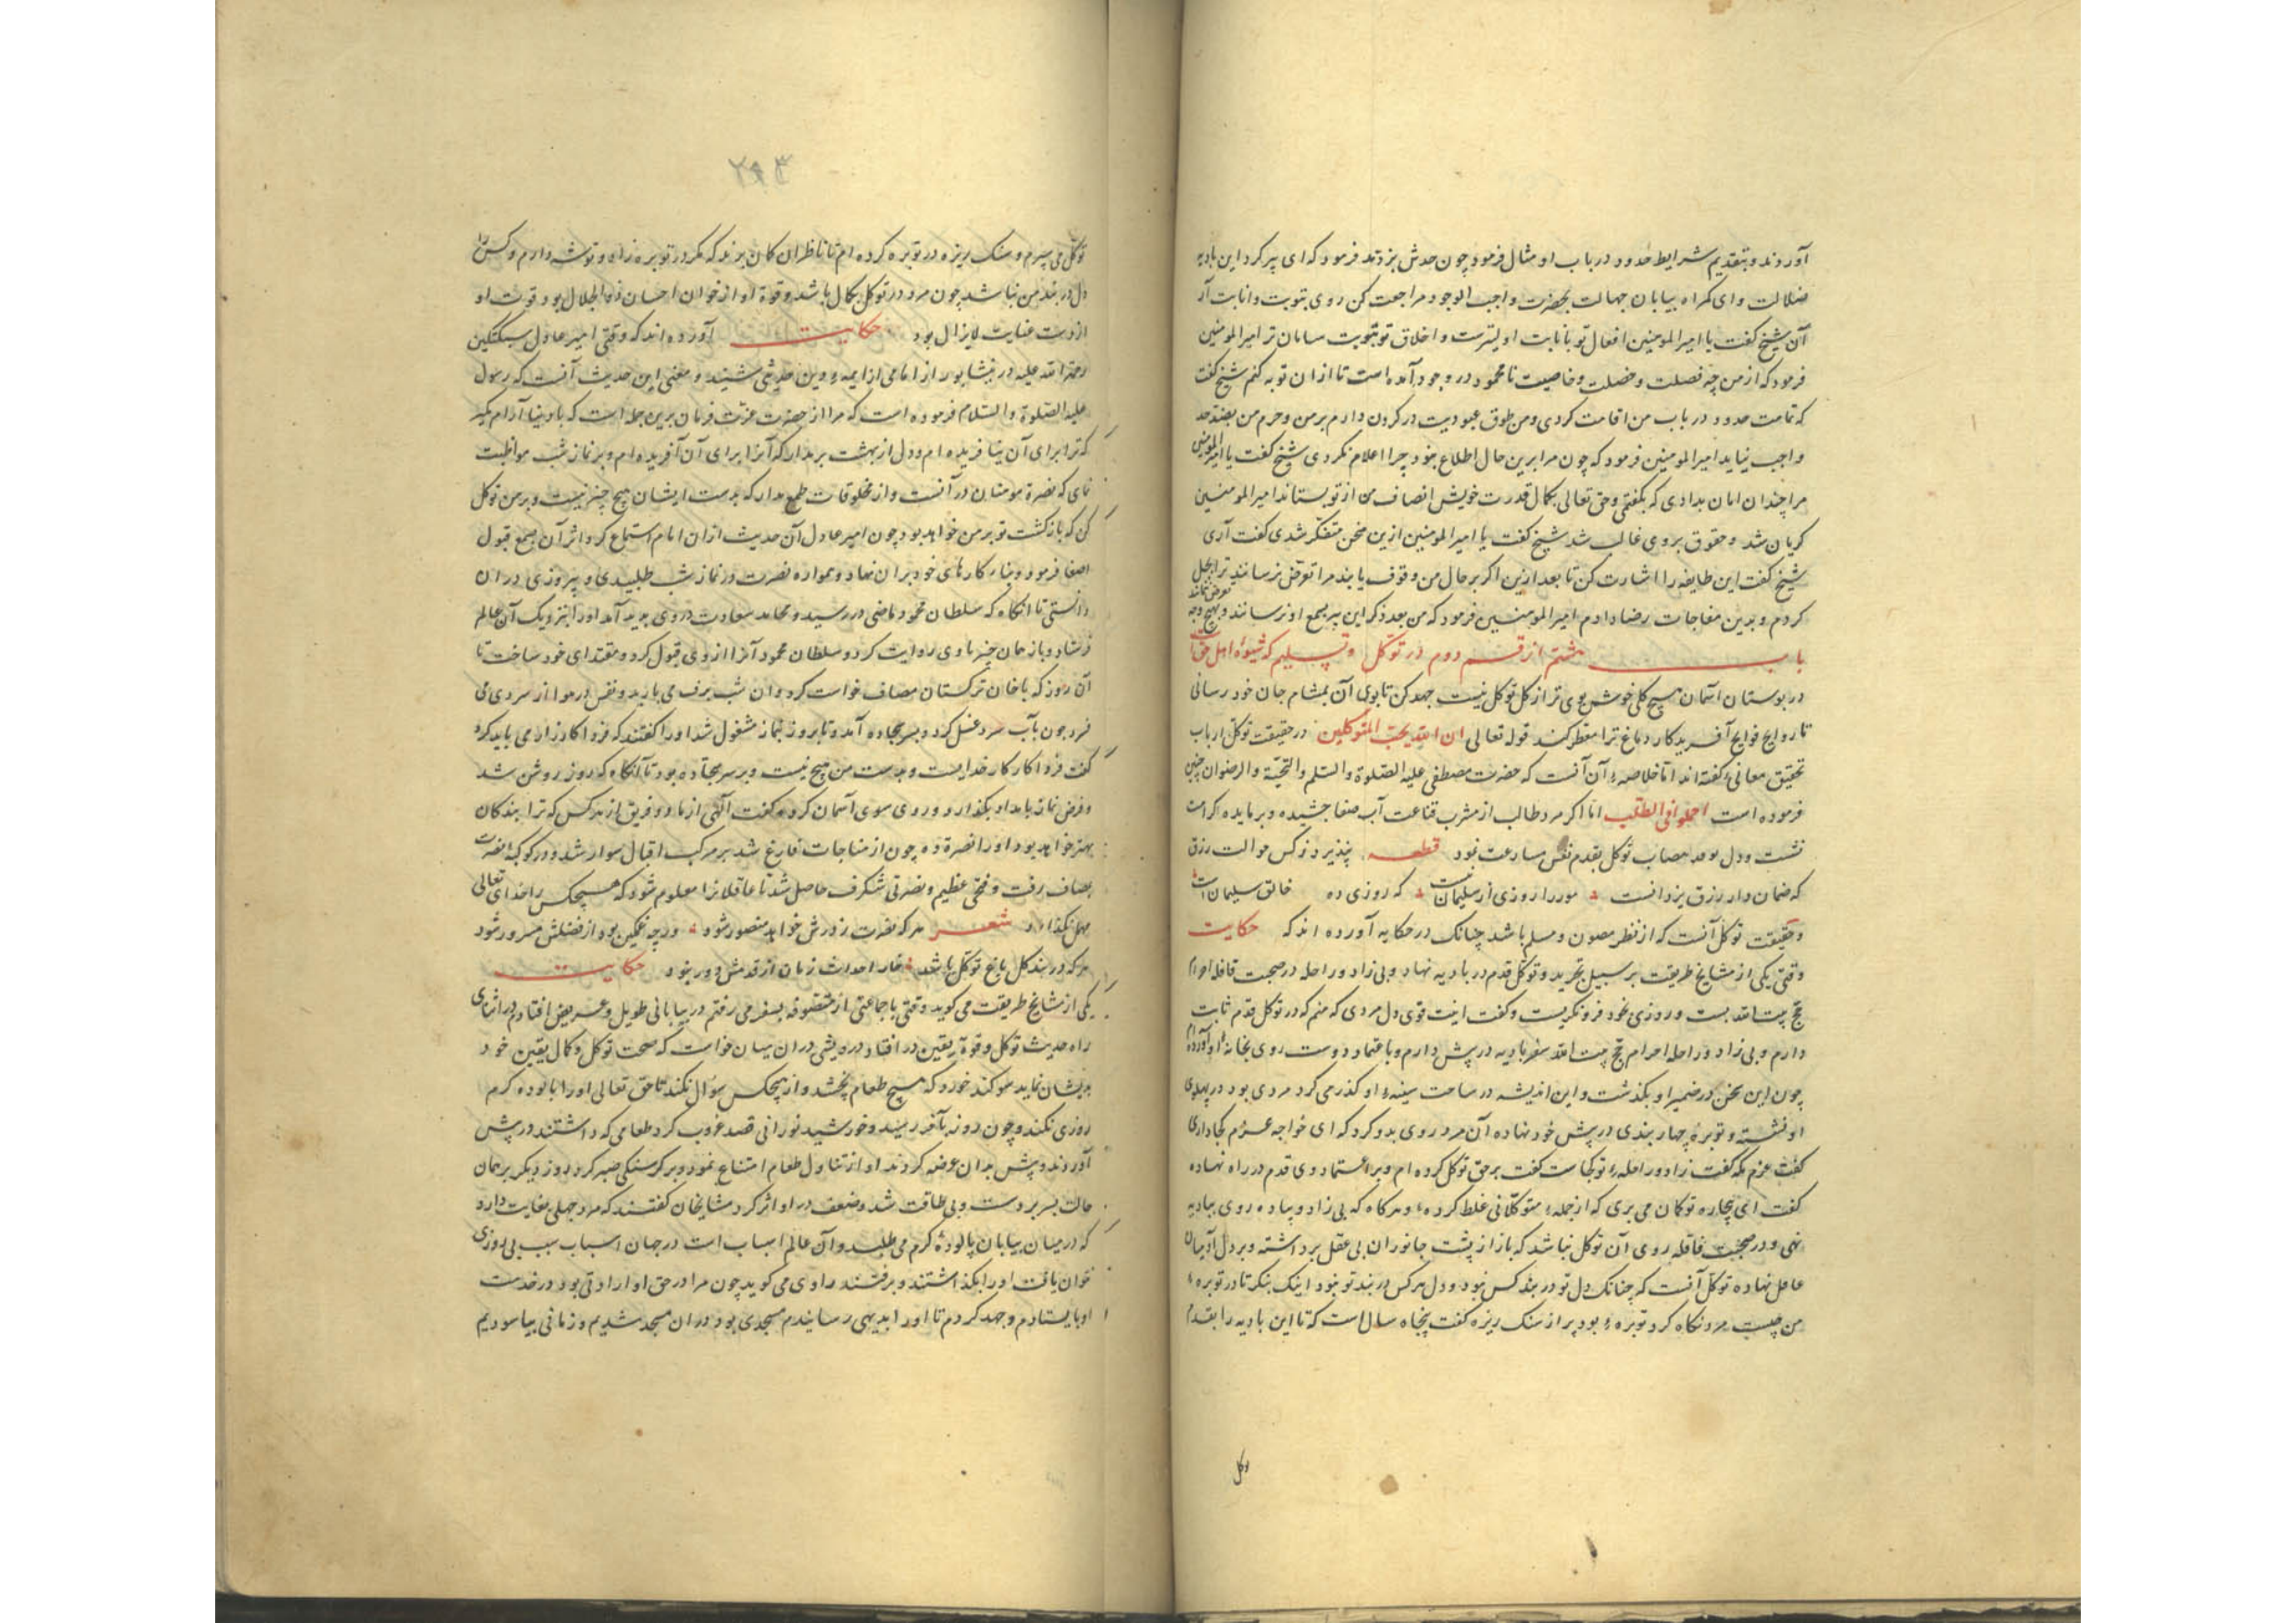 آوردند و بتقدیم شرایط حدود در باب او مثال فرمود چون حدش بزدند فرمود که ای پیر کرد این بادیه
ضلالت و ای کمراه بیابان جهالت بحضرت واجب الوجود مراجعت کن روی بتوبت و انابت آر
آن شیخ کفت یا امیر المومنین افعال تو بانابت اولیترست و اخلاق تو بتوبت سامان تر امیر المومنین
فرمود که از من چه فصلت و خصلت و خاصیت نامحمود در وجود آمده است تا از ان توبه کنم شیخ کفت
که تمامت حدود در باب من اقامت کردی و من طوق عبودیت در کردن دارم بر من و حرم من بصد حد
واجب نیاید امیر المومنین فرمود که چون مرا برین حال اطلاع نبود چرا اعلام نکردی شیخ کفت یا امیر المومنین
مرا چندان امان بدادی که بکفتمی و حق تعالی بکمال قدرت خویش انصاف من از تو بستاند امیر المومنین
کریان شد و حقوق بر وی غالب شد شیخ کفت یا امیر المومنین ازین سخن متفکر شدی کفت آری
شیخ کفت این طایفه را اشارت کن تا بعد ازین اکر بر حال من وقوف یابند مرا تعرض نرسانند ترا بحل
کردم و بدین مفاجات رضا دادم امیر المومنین فرمود که من بعد ذکر این پیر بسمع او نرسانند و بهیچ وجه تعرض نمانند
باب هشتم از قسم دوم در توکل و تسلیم که شیوۀ اهل حق است
در بوستان آسمان هیچ کلی خوش بوی تر از کل توکل نیست جهد کن تا بوی آن بمشام جان خود رسانی
تا روایح فوایح آفریدکار دماغ ترا معطر کند قوله تعالی ان الله یحب المتوکلین در حقیقت توکل ارباب
تحقیق معانی کفته اند اما خلاصهٔ آن آنست که حضرت مصطفی علیه الصلوة والسلم والتحیة والرضوان چنین
فرموده است اجملوا فی الطلب اما اکر مرد طالب از مشرب قناعت آب صفا چشیده و بر مایده اکرامت
نشست و دل مصاب توکل بقدم نفس مسارعت نمود قطعه پنذیرد ز کس حوالت رزق
که ضمان دار رزق یزدانست مور را روزی از سلیمان نیست که روزی ده خالق سلیمان است
و حقیقت توکل آنست که از نظر مصون و مسلم باشد چنانک در حکایه آورده اند که حکایت
وقتی یکی از مشایخ طریقت بر سبیل تجرید و توکل قدم در بادیه نهاد و بی زاد و راحله در صحبت قافله احرام
حج بیت الله بست و روزی بخود فرو نکریست و کفت اینت قوی دل مردی که منم که در توکل قدم ثابت
دارم و بی زاد و راحله احرام حج بیت الله سفر بادیه در پیش دارم و باعتماد دوست روی بخانهٔ او آورده ام
چون این سخن در ضمیر او بکذشت و این اندیشه در ساحت سینهٔ او کذر می کرد مردی بود در پهلوی
او نشسته و توبرهٔ چهار بندی در پیش خود نهاده آن مرد روی بدو کرد که ای خواجه عزم کجا داری
کفت عزم مکه کفت زاد و راحلهٔ تو کجاست کفت بر حق توکل کرده ام و بر اعتماد وی قدم در راه نهاده
کفت ای بیچاره تو کمان می بری که از جملهٔ متوکلانی غلط کردهٔ هر کاه که بی زاد و پیاده روی ببادیه
نهی و در صحبت قافله روی آن توکل نباشد که بار از پشت جانوران بی عقل برداشته و بر دل آدمیان
عاقل نهاده توکل آنست که چنانک دل تو در بند کس نبود و دل هر کس در بند تو نبود اینک بنکر تا در توبرهٔ
من چیست مرد نکاه کرد توبرهٔ بود پر از سنک ریزه کفت پنجاه سال است که تا این بادیه را بقدم
توکل
۲۹۳
توکل می سپرم و سنک ریزه در توبره کرده ام تا ناظران کان برند که مکر در توبره زاد و توشه دارم و کس را
دل در بند من نباشد چون مرد در توکل بکمال باشد و قوة او از خوان احسان ذو الجلال بود قوت او
از دست عنایت لایزال بود حکایت آورده اند که وقتی امیر عادل سبکتکین
رحمة الله علیه در نیشابور از امامی از ایمهٔ دین حدیثی شنید و معنی این حدیث آنست که رسول
علیه الصلوة والسلام فرموده است که مرا از حضرت عزت فرمان برین جمله است که با دنیا آرام مکیر
که ترا برای آن نیافریده ام و دل از بهشت بر مدار که آنرا برای آن آفریده ام و بر نماز شب مواظبت
نمای که نصرة مومنان در آنست و از مخلوقات طمع مدار که بدست ایشان هیچ چیز نیست و بر من توکل
کن که بازکشت تو بر من خواهد بود چون امیر عادل آن حدیث از ان امام استماع کرد اثر آن بسمع قبول
اصغا فرمود و بناء کارهای خود بران نهاد و همواره نصرت در نماز شب طلبیدی و پیروزی در ان
دانستی تا انکاه که سلطان محمود ماضی در رسید و محامد سعادت در وی پدید آمد او را بنزدیک آن عالم
فرستاد و باز همان خبر با وی روایت کرد و سلطان محمود آنرا از وی قبول کرد و مقتدای خود ساخت تا
آن روز که با خان ترکستان مصاف خواست کرد و ان شب برف می بارید و نفس در هوا از سردی می
فسرد چون بآب سرد غسل کرد و بسر سجاده آمد و تا بروز بنماز مشغول شد او را کفتند که فردا کارزار می باید کرد
کفت فردا کار کار خدایست و بدست من هیچ نیست و بر سر سجاده بود تا آنکاه که روز روشن شد
و فرض نماز بامداد بکذارد و روی سوی آسمان کرد کفت آلهی از ما دو فریق از هر کس که ترا بندکان
بهتر خواهد بود او را نصرة ده چون از مناجات فارغ شد بر مرکب اقبال سوار شد و در کوکبهٔ نصرت
بمصاف رفت و فتحی عظیم و نصرتی شکرف حاصل شد تا عاقلانرا معلوم شود که هیچکس را خدای تعالی
مهمل نکذارد شعر هر که نصرت ز ورش خواهد منصور شود ور چه غمکین بود از فضلش مسرور شود
هر که در بند کل باغ توکل باشد خار احداث زمان از قدمش دور بود حکایت
یکی از مشایخ طریقت می کوید وقتی با جماعتی از متصوفه بسفر می رفتم در بیابانی طویل و عریض افتادم در اثنای
راه حدیث توکل و قوة یقین در افتاد درویشی در ان میان خواست که صحت توکل و کمال یقین خود
بدیشان نماید سوکند خورد که هیچ طعام نچشد و از هیچکس سؤال نکند تا حق تعالی او را پالوده کرم
روزی نکند و چون روز بآخر رسید و خورشید نورانی قصد غروب کرد طعامی که داشتند در پیش
آوردند و پیش بدان عرضه کردند او از تناول طعام امتناع نمود و بر کرسنکی صبر کرد روز دیکر بر همان
حالت بسر برد سست و بی طاقت شد و ضعف در او اثر کرد مشایخان کفتند که مرد جهلی بغایت دارد
که در میان بیابان پالودهٔ کرم می طلبد و آن عالم اسباب است در جهان اسباب سبب بی روزی
نتوان یافت او را بکذاشتند و برفتند راوی می کوید چون مرا در حق او ارادتی بود در خدمت
او بایستادم و جهد کردم تا او را بدیهی رسانیدم مسجدی بود در ان مسجد شدیم و زمانی بیاسودیم